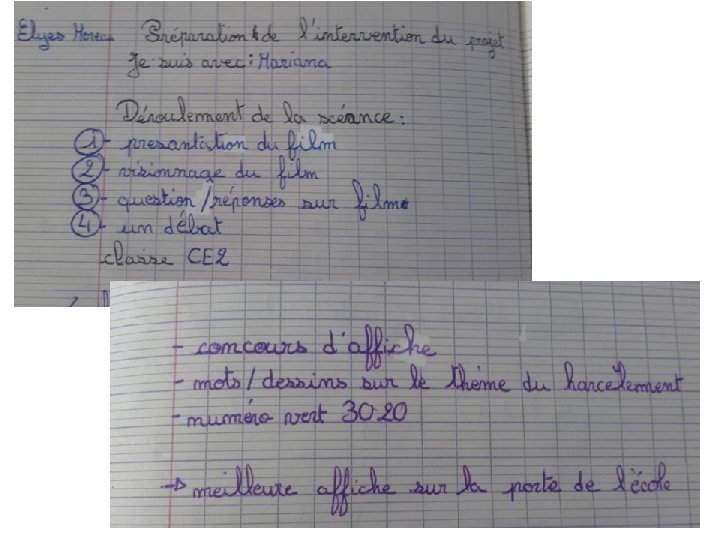 Elyes Moreau Préparation de l'intervention du projet
Je suis avec : Mariana
Déroulement de la scéance :
1 - presantation du film
2 - visionnage du film
3 - question / réponses sur film
4 - un débat
classe CE2
- concours d'affiche
- mots / dessins sur le thème du harcelement
- numéro vert 30 20
→ meilleure affiche sur la porte de l'école